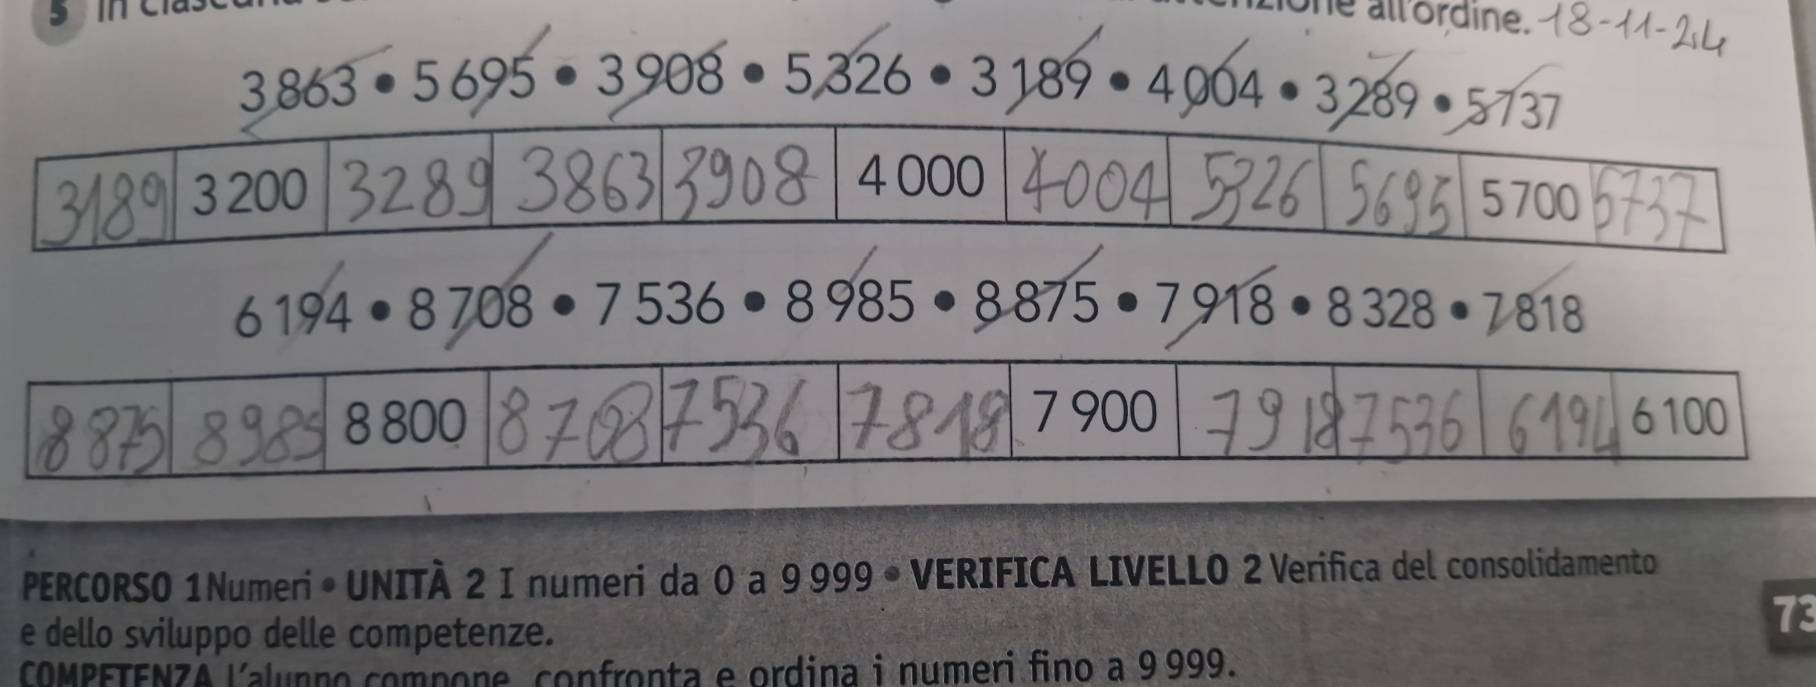 5 In all'ordine. 18-11-24
3 863 • 5 695 • 3 908 • 5 326 • 3 189 • 4 004 • 3 289 • 5 737
3189 3 200 3289 3863 3908 4 000 4004 5326 5695 5 700 5737
6 194 • 8 708 • 7 536 • 8 985 • 8 875 • 7 918 • 8 328 • 7 818
8875 8985 8 800 8708 7536 7818 7 900 7918 7536 6194 6 100
PERCORSO 1 Numeri • UNITÀ 2 I numeri da 0 a 9 999 • VERIFICA LIVELLO 2 Verifica del consolidamento
e dello sviluppo delle competenze.
73
COMPETENZA L'alunno compone, confronta e ordina i numeri fino a 9 999.